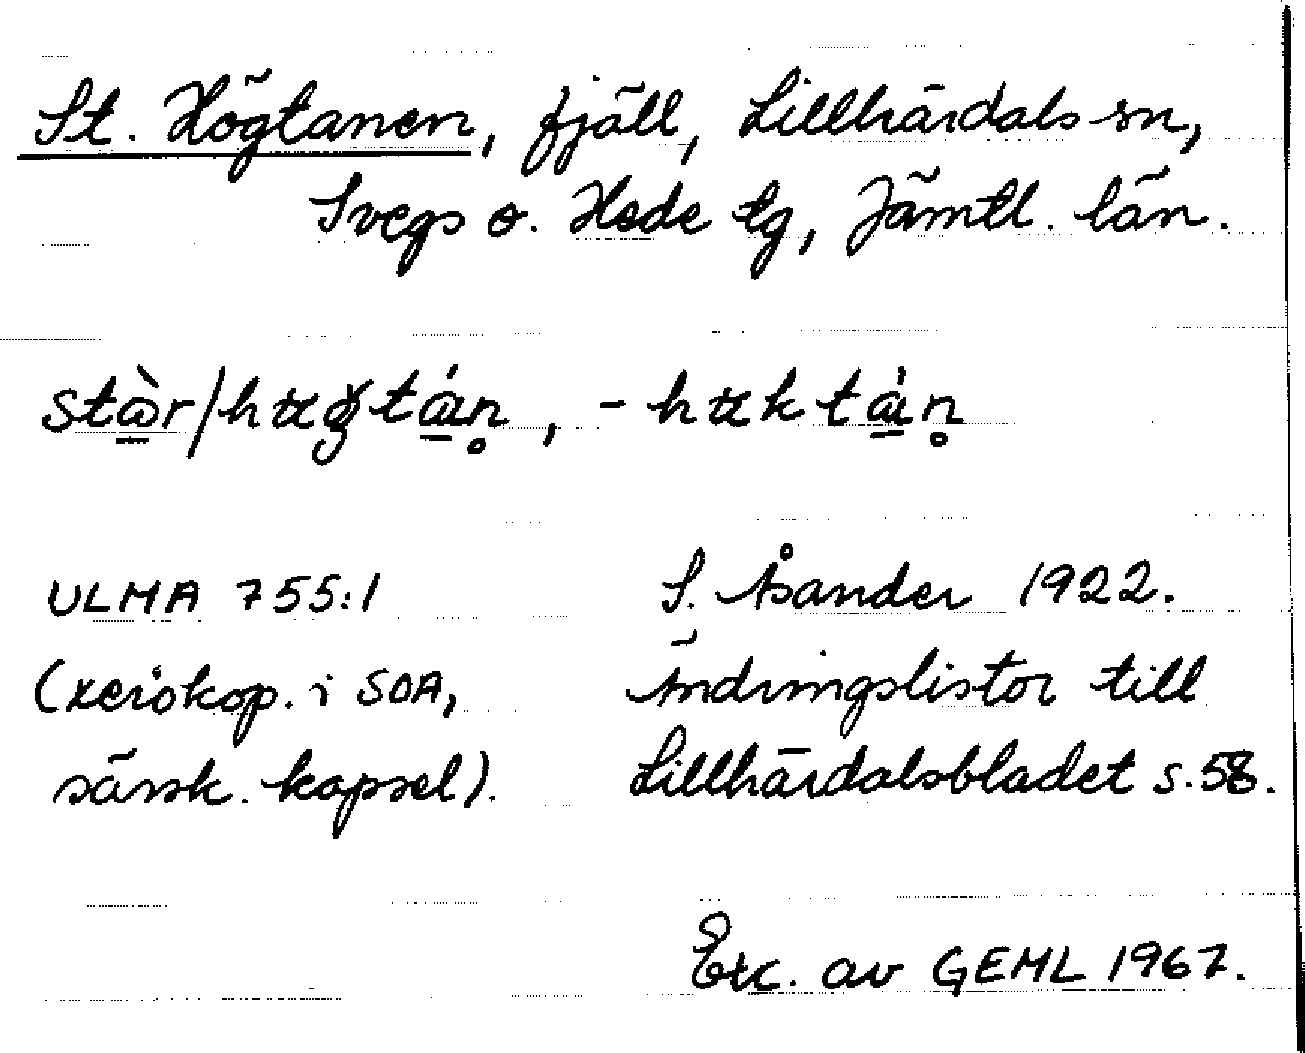 St. Högtanen, fjäll, Lillhärdals sn,
Svegs o. Hede tg, Jämtl. län.
ULMA 755:1
S. Åsander 1922.
(xerokop. i SOA,
Ändringslistor till
särsk. kapsel).
Lillhärdalsbladet s. 58.
Exc. av GEML 1967.